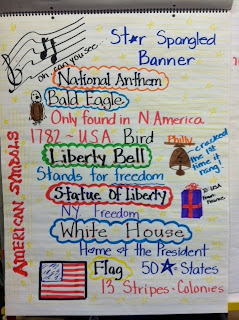 Star Spangled
Banner
oh can you see...
National Anthem
Bald Eagle
Only found in N America
1782 - USA Bird
Philly
Liberty Bell
cracked
the 1st
time it
rang!
Stands for freedom
Statue of Liberty
To: USA
From:
NY Freedom
White House
Home of the President
Flag 50 - States
13 Stripes - Colonies
AMERICAN SYMBOLS